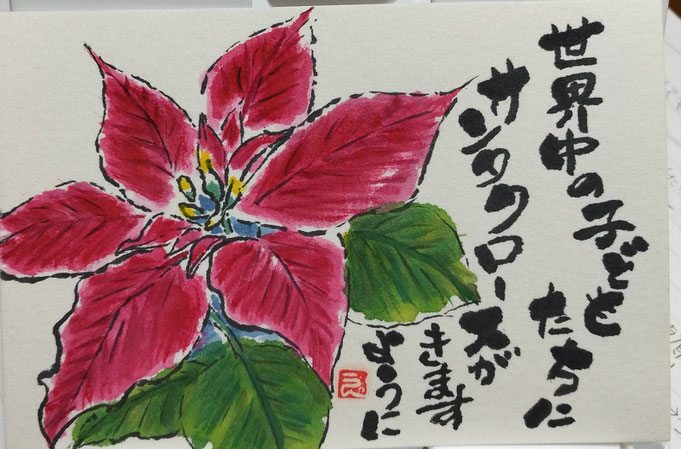 世界中の子ども
たちに
サンタクロースが
きます
ように